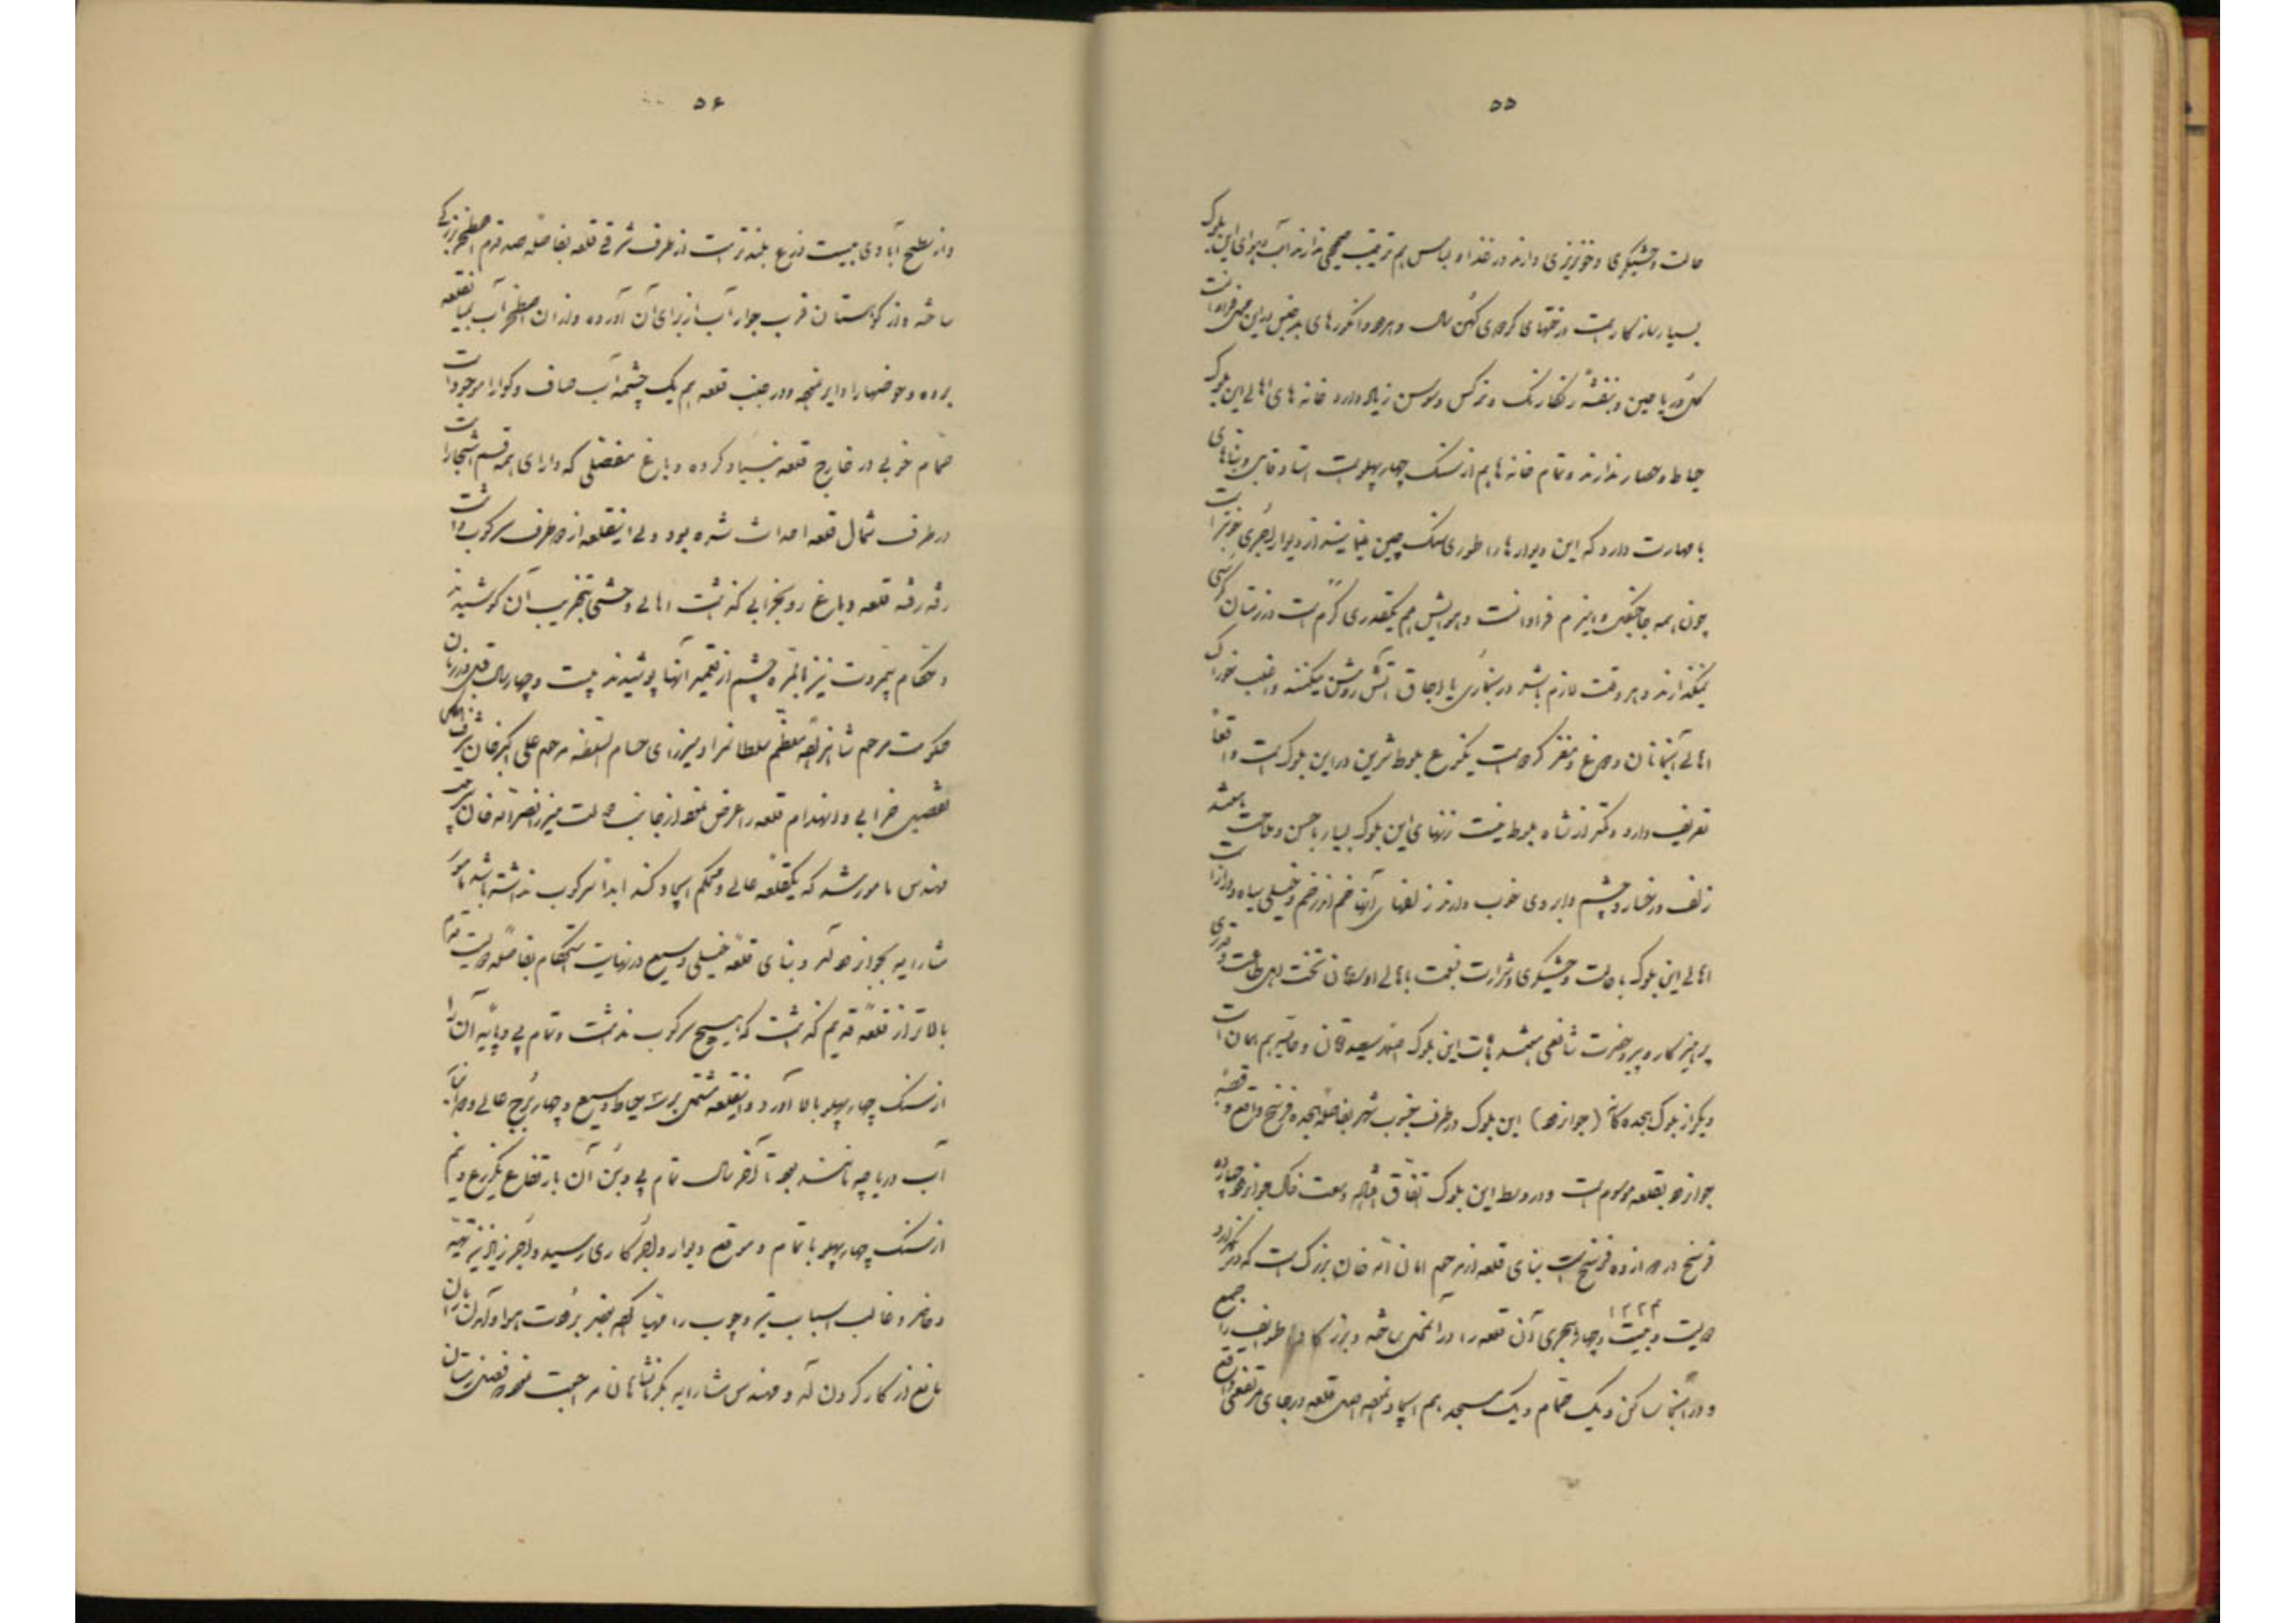 ۵۵
حالت وحشیگری و خونریزی دارند در غذا و لباس هم ترتیب صحیحی ندارند آب و هوای این بلوک
بسیار سازگار است درختهای گردوی کهن سال و هرجور انگورهای بدین محل فراوانست
گل و ریاحین و بنفشه رنگارنگ و نرگس و سوسن زیاد دارد خانه های اهالی این بلوک
حیاط و حصار ندارند و تمام خانه ها هم از سنگ چهار پهلو است استاد قابل و بناهای
با مهارت دارد که این دیوارها را طوری سنگ چین مینمایند از دیوار آجری خوبتر است
چون همه جا جنگل و هیزم فراوانست و هوایش هم یکقدری گرم است در زمستان کرسی
نمیگذارند و هر وقت لازم باشد در بخاری یا اجاق آتش روشن میکنند و اغلب خوراک
اهالی آنجا نان و مرغ و مغز گردو است یکنوع بلوط شیرین در این بلوک است واقعاً
تعریف دارد و کمتر از شاه بلوط نیست زنهای این بلوک بسیار با حسن و ملاحت میباشند
زلف و رخسار و چشم و ابروی خوب دارند زلفهای آنها خم اندر خم و خیلی سیاه و دراز است
اهالی این بلوک با حالت وحشیگری و شرارت نسبت باهالی اورامان تخت اهل طاعت و قدری
پرهیزکار و پیرو حضرت شافعی میباشند این بلوک هم امان است
دیگر از بلوک هجده گانه (جوانرود) این بلوک در طرف جنوب شهر بفاصله هجده فرسخ واقع و قصبه
جوانرود بقلعه موسوم است و در وسط این بلوک اتفاق افتاده وسعت خاک جوانرود چهارده
فرسخ در دوازده فرسخ است بنای قلعه از مرحوم امان الله خان بزرگ است که در یکهزار و
۱۲۲۴
دویست و بیست و چهار هجری آن قلعه را در آن محل ساخته و بزرگان طوایف را جمع
و در آنجا ساکن و یک حمام و یک مسجد هم ایجاد نمود اصل قلعه در جای مرتفعی واقع
۵۶
و از سطح آبادی بیست ذرع بلندتر است از طرف شرقی قلعه بفاصله صد قدم اصطخر بزرگی
ساخته و از کوهستان قرب جوار آب از برای آن آورده و از آن اصطخر آب بمیان قلعه
برده و حوضها را دایر نموده و در جنب قلعه هم یک چشمه آب صاف و گوارا موجود است
حمام خوبی در خارج قلعه بنیاد کرده و باغ مفصلی که دارای همه قسم اشجار است
در طرف شمال قلعه احداث شده بود ولی این قلعه از دو طرف سرکوب داشت
رفته رفته قلعه و باغ رو بخرابی گذاشت اهالی وحشی بتخریب آن کوشیدند
و حکام بیمروت نیز بالمره چشم از تعمیر آنها پوشیدند بیست و چهار سال قبل در زمان
حکومت مرحوم شاهزاده معظم سلطان مراد میرزای حسام السلطنه مرحوم علی اکبر خان شرف الملک
تفصیل خرابی و انهدام قلعه را عرض نمود از جانب دولت میرزا نصرالله خان سرتیپ
مهندس مامور شد که یک قلعه عالی و محکم ایجاد کند ابداً سرکوب نداشته باشد مامور
مشارالیه بجوانرود آمد و بنای قلعه خیلی وسیع در نهایت استحکام بفاصله دویست قدم
بالاتر از قلعه قدیم گذاشت که هیچ سرکوب نداشت و تمام پی و پایه آن را
از سنگ چهار پهلو بالا آورد و این قلعه مشتمل بر سه حیاط وسیع و چهار برج عالی و
آب دریاچه مانند بود تا آخر سال تمام پی و بن آن بارتفاع یکذرع و نیم
از سنگ چهار پهلو باتمام و موقع دیوار و آجر کاری رسید و آجر زیاد نیز تهیه
و حاضر و غالب اسباب تیر و چوب را مهیا کرد بجهة برودت هوا و آمدن باران
مانع از کار کردن آمد و مهندس مشارالیه بکرمانشاهان مراجعت نمود فصل زمستان